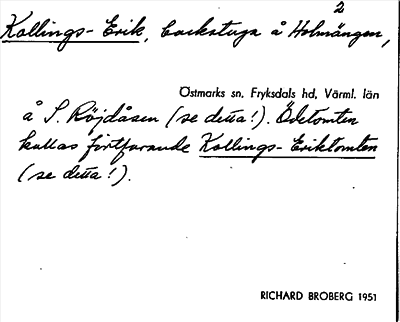 2
Kollings-Erik, backstuga å Holmängen,
Östmarks sn, Fryksdals hd, Värml. län
å S. Röjdåsen (se detta!). Ödetomten
kallas fortfarande Kollings-Eriktomten
(se detta!).
RICHARD BROBERG 1951